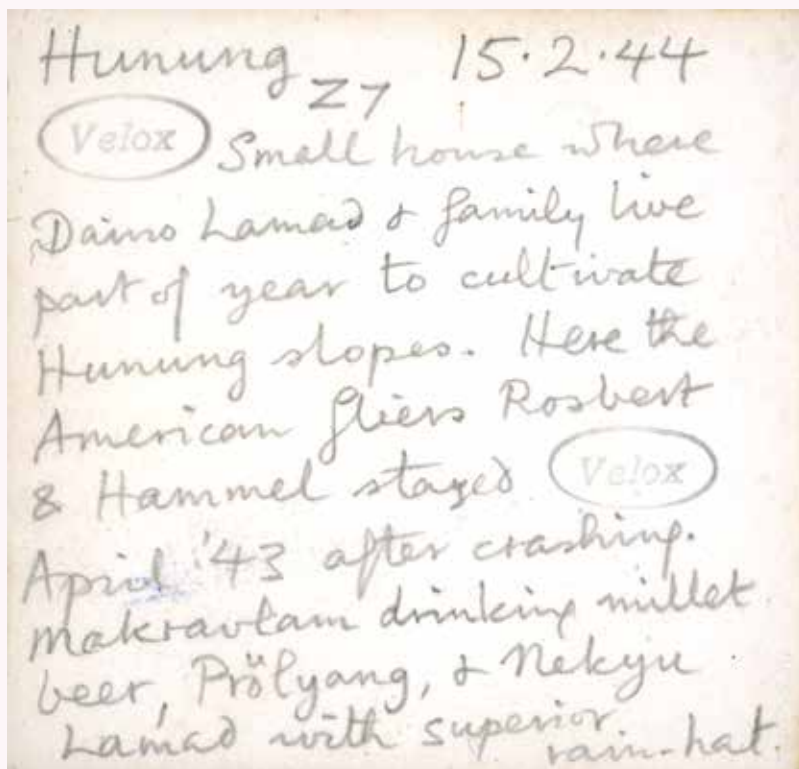 Hunung Z7 15.2.44
Velox Small house where
Daino Lamad & family live
part of year to cultivate
Hunung slopes. Here the
American fliers Rosbert
& Hammel stayed Velox
April '43 after crashing.
Makravlam drinking millet
beer, Prölyang, & Nekyu
Lamad with superior
rain-hat.